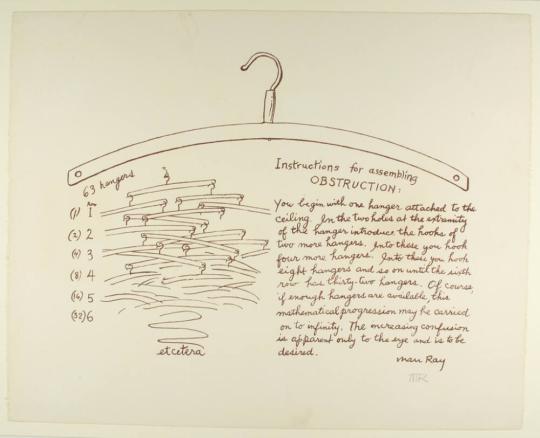 63 hangers
Row
(1) 1
(2) 2
(4) 3
(8) 4
(16) 5
(32) 6
etcetera
Instructions for assembling
OBSTRUCTION:
You begin with one hanger attached to the
ceiling. In the two holes at the extremity
of the hanger introduce the hooks of
two more hangers. Into these you hook
four more hangers. Into these you hook
eight hangers and so on until the sixth
row has thirty-two hangers. Of course,
if enough hangers are available, this
mathematical progression may be carried
on to infinity. The increasing confusion
is apparent only to the eye and is to be
desired.
Man Ray
MR